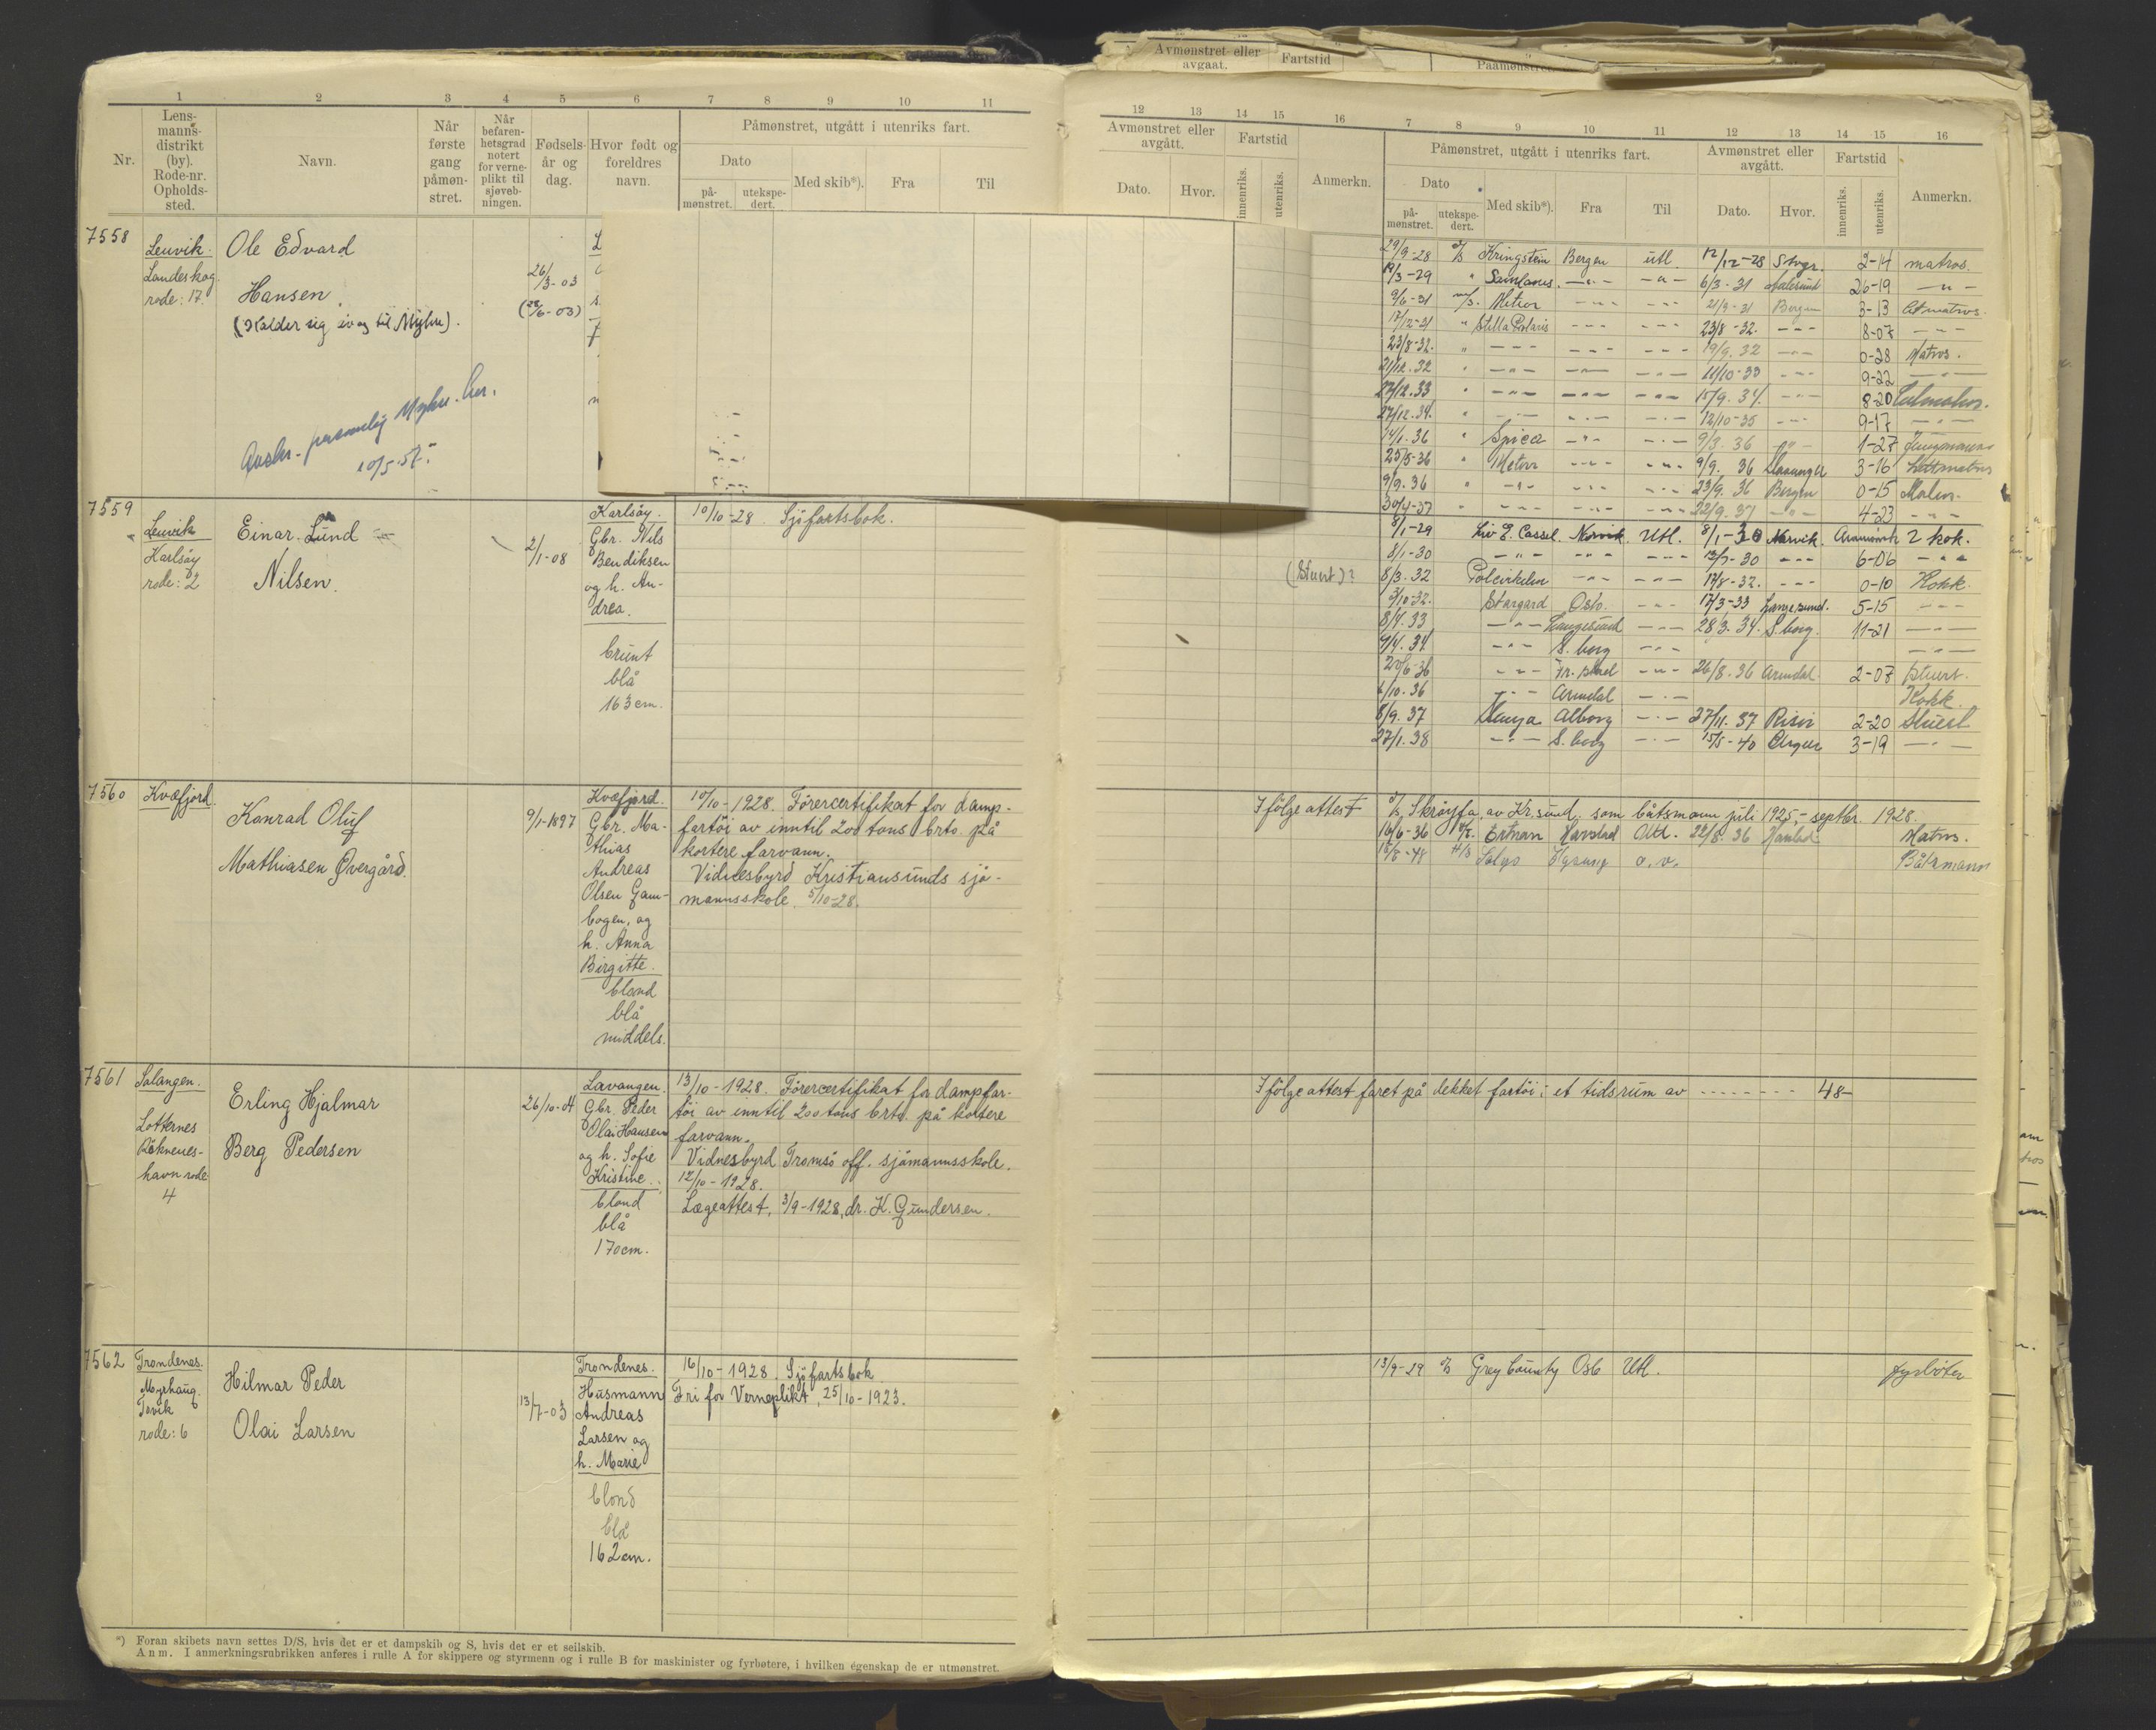 Avmønstret eller avgaat. Fartstid Paamønstret
1 2 3 4 5 6 7 8 9 10 11
Nr. Lens-
manns-
distrikt
(by).
Rode-nr.
Opholds-
sted.
Navn.
Når
første
gang
påmøn-
stret.
Når
befaren-
hetsgrad
notert
for verne-
plikt til
sjøveb-
ningen.
Fødsels-
år og
dag.
Hvor født og
foreldres
navn.
Påmønstret, utgått i utenriks fart.
Dato
på-
mønstret.
utekspe-
dert.
Med skib*).
Fra
Til
7558
Lenvik.
Landeskog
rode: 17.
Ole Edvard
Hansen
(Kalder sig og til Myhre).
26/3-03
personlig Myhre. her.
10/5-57.
7559
Lenvik
Karlsøy
rode: 2
Einar Lund
Nilsen.
2/1-08
Karlsøy.
Gbr. Nils
Bendiksen
og h. An-
drea.
brunt
blå
163 cm.
10/10-28. Sjøfartsbok.
7560
Kvæfjord.
Konrad Oluf
Mathiasen Øvergård.
9/1-1897
Kvæfjord.
Gbr. Ma-
thias
Andreas
Olsen Gam-
bogen, og
h. Anna
Birgitte.
blond
blå
middels.
10/10-1928. Førercertifikat for damp-
fartøi av inntil 200 tons brto. på
kortere farvann.
Vidnesbyrd Kristiansunds sjø-
mannsskole. 5/10-28.
7561
Salangen.
Lotternes
havn rode
4
Erling Hjalmar
Berg Pedersen
26/10-04
Lavangen.
Gbr. Peder
Olai Hansen
og h. Sofie
Kristine.
blond
blå
170 cm.
13/10-1928. Førercertifikat for dampfar-
tøi av inntil 200 tons brto. på kortere
farvann.
Vidnesbyrd Tromsø off. sjømannsskole.
12/10-1928.
Lægeattest, 3/9-1928, dr. K. Gundersen.
7562
Trondenes.
Myrhaug.
Tovik
rode: 6
Hilmar Peder
Olai Larsen
13/7-03
Trondenes.
Husmann
Andreas
Larsen og
h. Marie
blond
blå
162 cm.
16/10-1928. Sjøfartsbok
Fri for Verneplikt, 25/10-1923.
*) Foran skibets navn settes D/S, hvis det er et dampskib og S, hvis det er et seilskib.
Anm. I anmerkningsrubrikken anføres i rulle A for skippere og styrmenn og i rulle B for maskinister og fyrbøtere, i hvilken egenskap de er utmønstret.
12 13 14 15 16 7 8 9 10 11 12 13 14 15 16
Avmønstret eller
avgått.
Dato. Hvor.
Fartstid
innenriks. utenriks.
Anmerkn.
Påmønstret, utgått i utenriks fart.
Dato
på-
mønstret.
utekspe-
dert.
Med skib*).
Fra
Til
Avmønstret eller
avgått.
Dato. Hvor.
Fartstid
innenriks. utenriks.
Anmerkn.
29/9-28 Kringstein Bergen utl. 12/12-28 Stvgr. 2-14 matros.
19/3-29 " -"- -"- 6/3-31 Aalesund 26-19 -"-
9/6-31 m/s. Meteor -"- -"- 21/9-31 Bergen 3-13 matros.
17/12-31 " Stella Polaris -"- -"- 23/8-32. -"- 8-07 -"-
23/8-32. " -"- -"- -"- 19/9.32 -"- 0-28 Matros.
21/12.32 " -"- -"- -"- 11/10-33 -"- 9-22 -"-
17/12.33 " -"- -"- -"- 15/9.34. -"- 8-20
27/12.34. " -"- -"- -"- 12/10-35 -"- 9-17 -"-
14/1.36 " Spica -"- -"- 9/3.36 -"- 1-27 Jungmann
25/5-36 " Meteor -"- -"- 9/9.36 Stavanger 3-16 Lettmatros
9/9.36 " -"- -"- -"- 23/9.36 Bergen 0-15
30/4-37 " -"- -"- -"- 22/9.37 -"- 4-23 -"-
8/1-29 Liv E. Cassel. Narvik. Utl. 8/1-30 Narvik. 2 kok.
8/1-30 -"- -"- -"- 13/7-30 -"- 6-06 -"-
(Stuert)? 8/3.32 Polcirkelen -"- -"- 17/8-32. -"- 0-10 Kokk.
2/10-32. Stargard Oslo. -"- 17/3-33 Langesund. 5-15 -"-
8/4.33 -"- Langesund -"- 28/3.34. S.borg. 11-21 -"-
9/4.34 -"- S.borg -"- -"-
20/6-36 -"- Fr.stad -"- 26/8.36 Arendal. 2-07 Stuert.
6/10.36 -"- Arendal -"- Kokk.
8/9.37 Alborg -"- 27/11.37 Risør 2-20 Stuert
27/1.38 -"- S.borg -"- 15/5-40 Bergen 3-19 -"-
I følge attest Skrøyfa, av Kr.sund, som båtsmann juli 1925,-septbr. 1928.
16/6-36 Harstad Utl. 22/8.36 Harstad Matros.
18/8-48 o.v. Båtsmann
I følge attest faret på dekket fartøi i et tidsrum av ------- 48-
13/9-29 Grey County Oslo Utl. fyrbøter